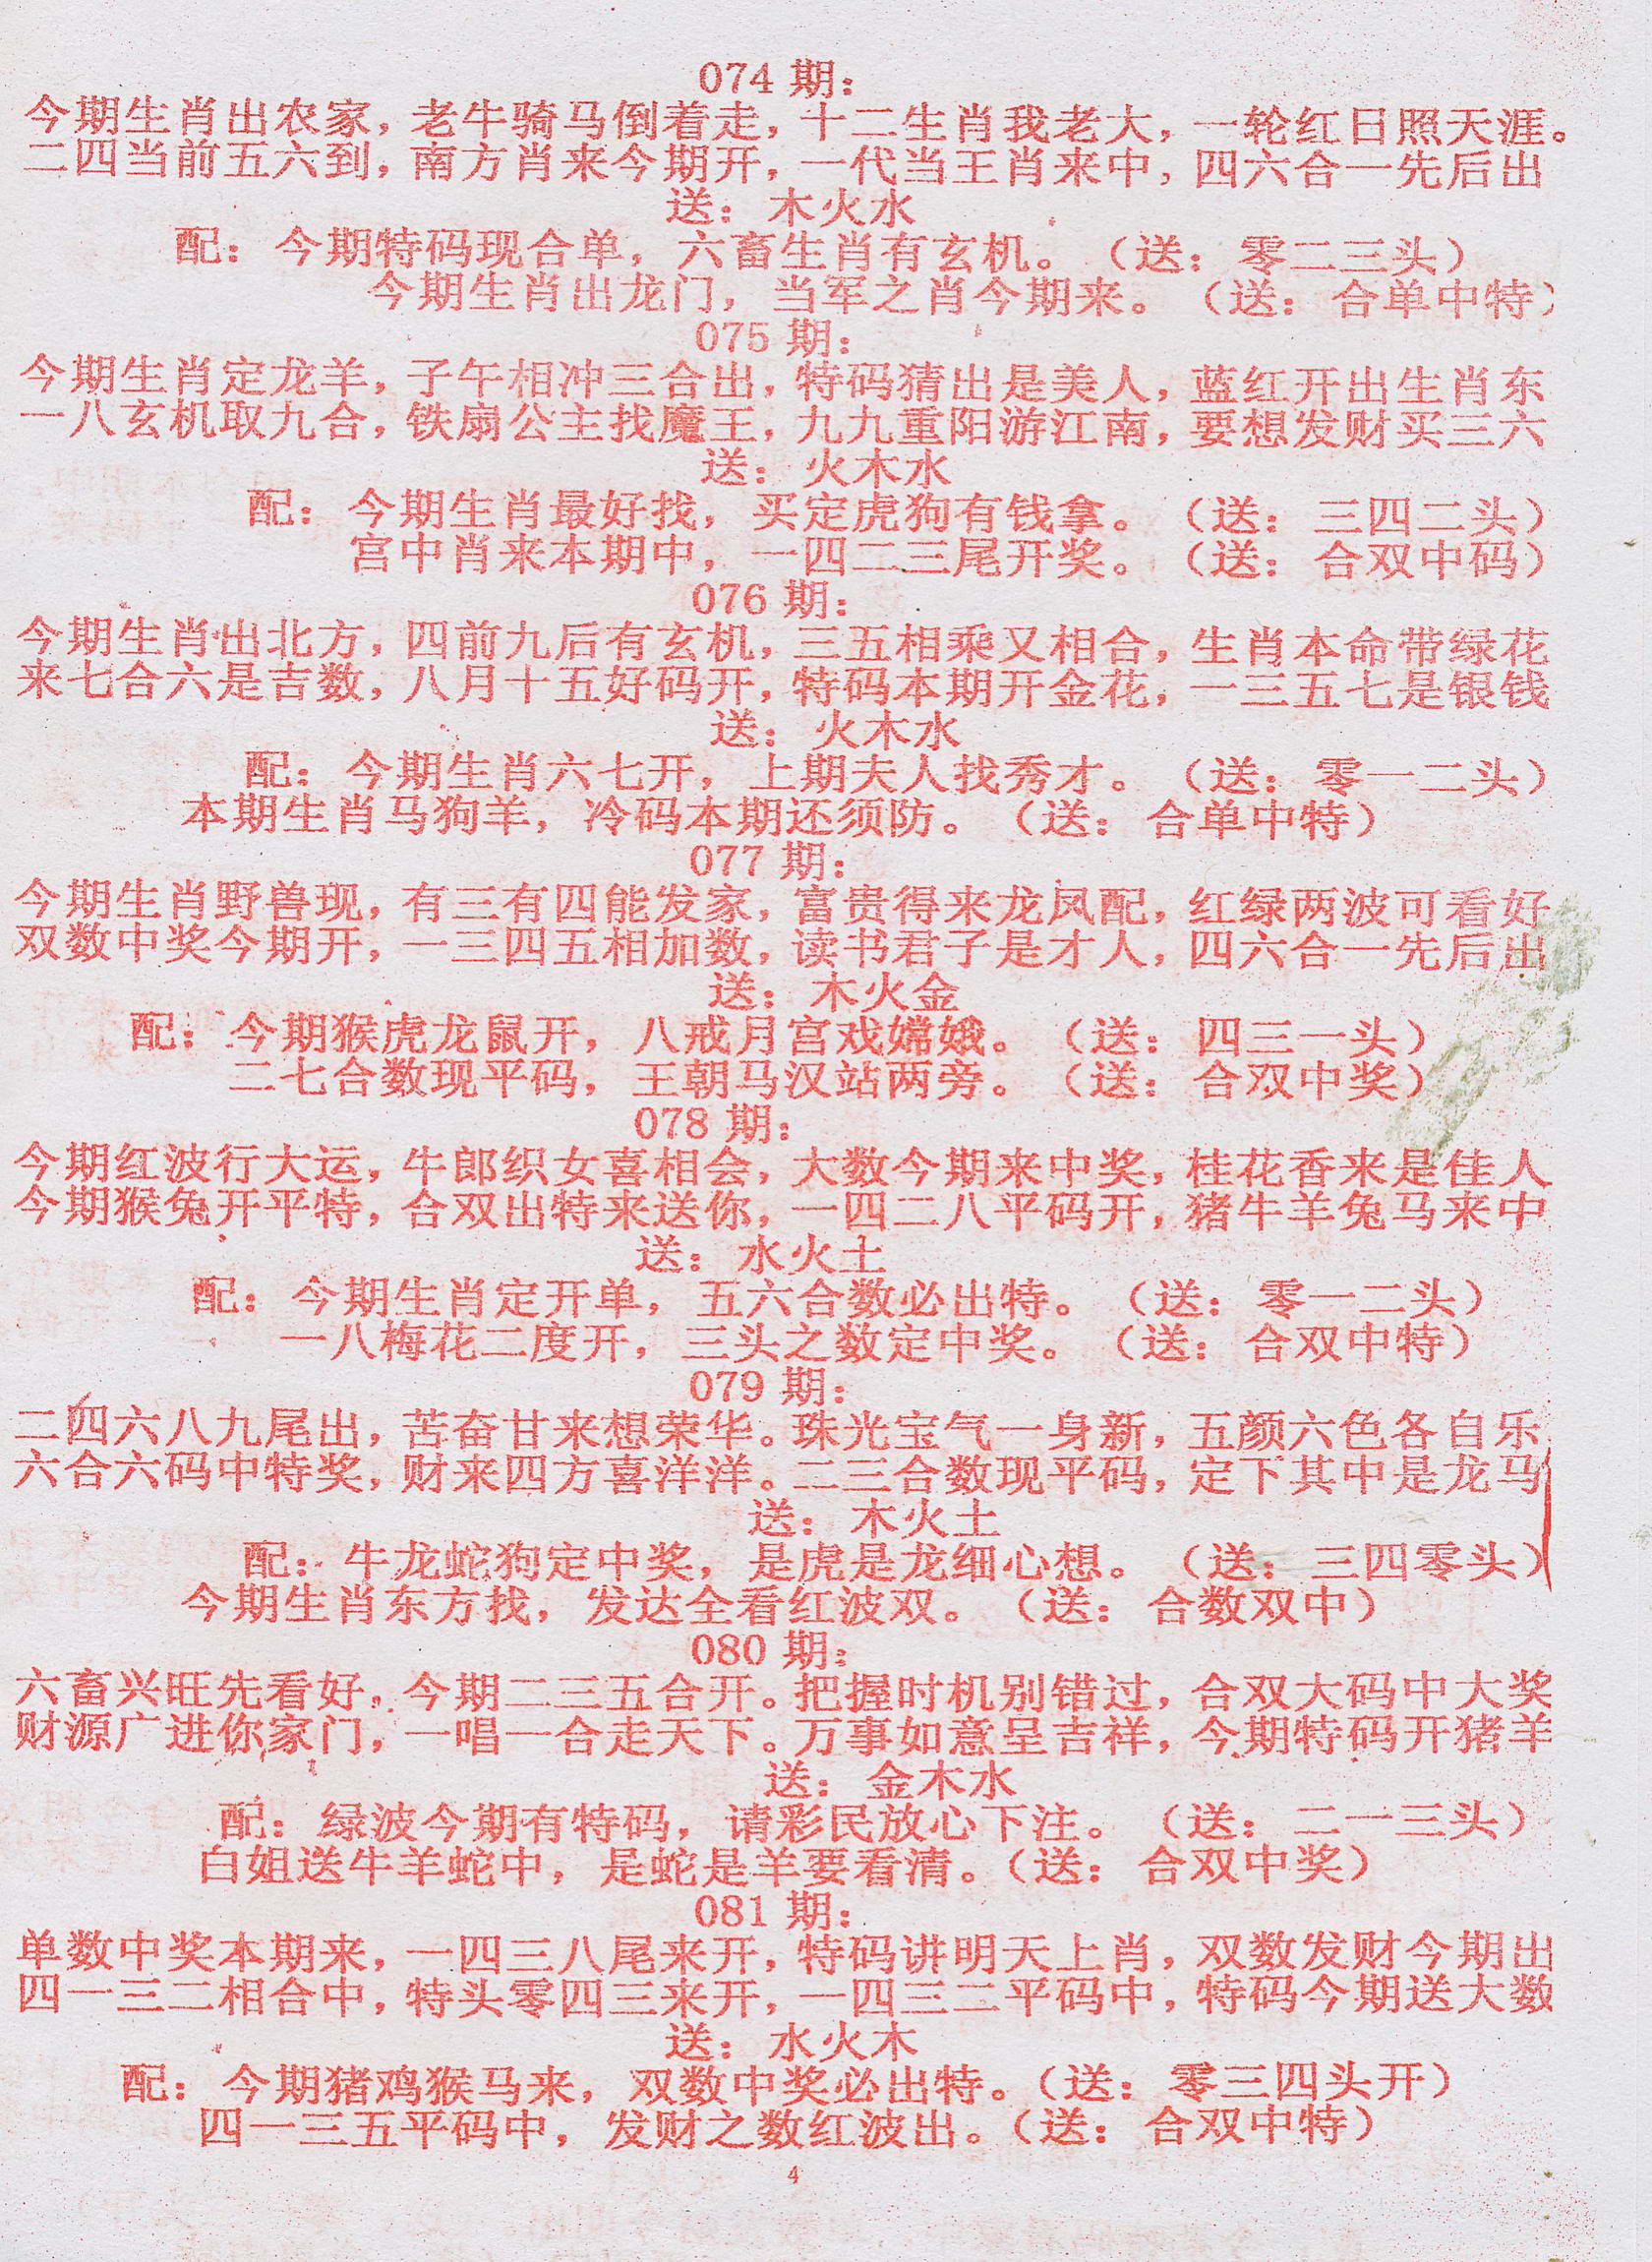 074 期：
今期生肖出农家，老牛骑马倒着走，十二生肖我老大，一轮红日照天涯。
二四当前五六到，南方肖来今期开，一代当王肖来中，四六合一先后出
送：木火水
配：今期特码现合单，六畜生肖有玄机。（送：零二三头）
今期生肖出龙门，当军之肖今期来。（送：合单中特）
075 期：
今期生肖定龙羊，子午相冲三合出，特码猜出是美人，蓝红开出生肖东
一八玄机取九合，铁扇公主找魔王，九九重阳游江南，要想发财买三六
送：火木水
配：今期生肖最好找，买定虎狗有钱拿。（送：三四二头）
宫中肖来本期中，一四二三尾开奖。（送：合双中码）
076 期：
今期生肖出北方，四前九后有玄机，三五相乘又相合，生肖本命带绿花
来七合六是吉数，八月十五好码开，特码本期开金花，一三五七是银钱
送：火木水
配：今期生肖六七开，上期夫人找秀才。（送：零一二头）
本期生肖马狗羊，冷码本期还须防。（送：合单中特）
077 期：
今期生肖野兽现，有三有四能发家，富贵得来龙凤配，红绿两波可看好
双数中奖今期开，一三四五相加数，读书君子是才人，四六合一先后出
送：木火金
配：今期猴虎龙鼠开，八戒月宫戏嫦娥。（送：四三一头）
二七合数现平码，王朝马汉站两旁。（送：合双中奖）
078 期：
今期红波行大运，牛郎织女喜相会，大数今期来中奖，桂花香来是佳人
今期猴兔开平特，合双出特来送你，一四二八平码开，猪牛羊兔马来中
送：水火土
配：今期生肖定开单，五六合数必出特。（送：零一二头）
一八梅花二度开，三头之数定中奖。（送：合双中特）
079 期：
二四六八九尾出，苦奋甘来想荣华。珠光宝气一身新，五颜六色各自乐
六合六码中特奖，财来四方喜洋洋。二三合数现平码，定下其中是龙马
送：木火土
配：牛龙蛇狗定中奖，是虎是龙细心想。（送：三四零头）
今期生肖东方找，发达全看红波双。（送：合数双中）
080 期：
六畜兴旺先看好，今期二三五合开。把握时机别错过，合双大码中大奖
财源广进你家门，一唱一合走天下。万事如意呈吉祥，今期特码开猪羊
送：金木水
配：绿波今期有特码，请彩民放心下注。（送：二一三头）
白姐送牛羊蛇中，是蛇是羊要看清。（送：合双中奖）
081 期：
单数中奖本期来，一四三八尾来开，特码讲明天上肖，双数发财今期出
四一三二相合中，特头零四三来开，一四三二平码中，特码今期送大数
送：水火木
配：今期猪鸡猴马来，双数中奖必出特。（送：零三四头开）
四一三五平码中，发财之数红波出。（送：合双中特）
4